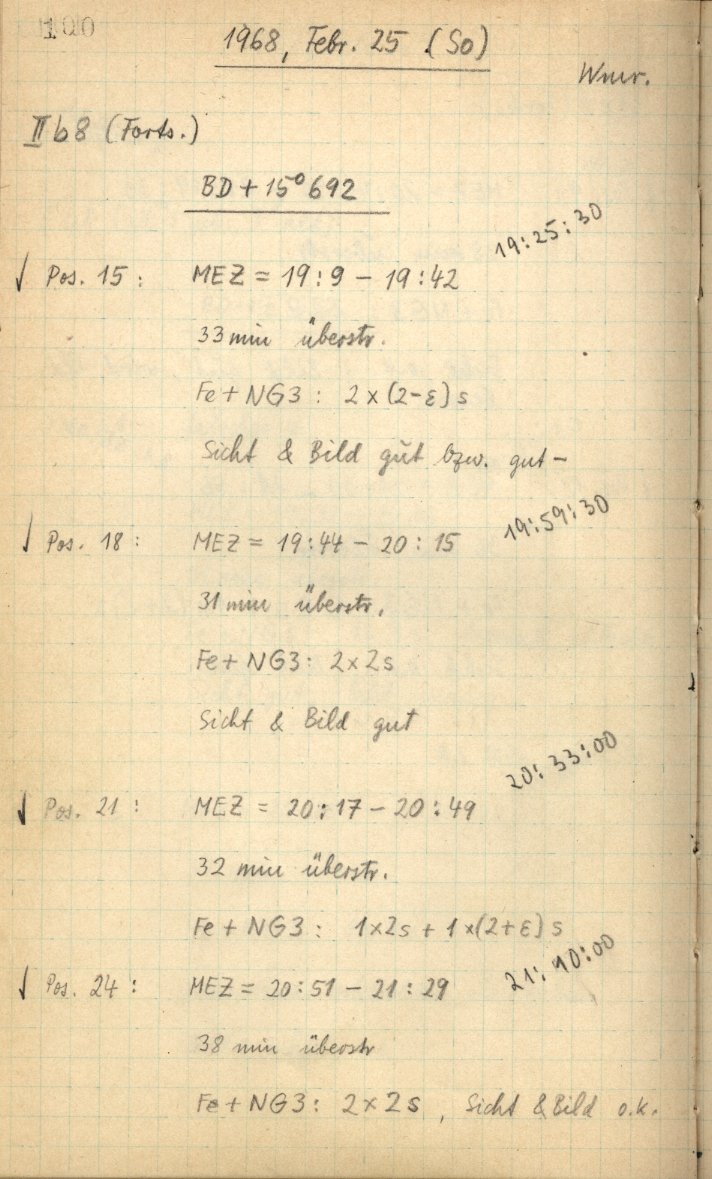 100
1968, Febr. 25 (So)
Wmr.
II b 8 (Forts.)
BD + 15° 692
19:25:30
√ Pos. 15 : MEZ = 19:9 – 19:42
33 min überstr.
Fe + NG3 : 2 x (2-ε) s
Sicht & Bild gut bzw. gut –
19:59:30
√ Pos. 18 : MEZ = 19:44 – 20:15
31 min überstr.
Fe + NG3 : 2x2s
Sicht & Bild gut
20:33:00
√ Pos. 21 : MEZ = 20:17 – 20:49
32 min überstr.
Fe + NG3 : 1x2s + 1x(2+ε) s
21:10:00
√ Pos. 24 : MEZ = 20:51 – 21:29
38 min überstr
Fe + NG3 : 2x2s , Sicht & Bild o.k.